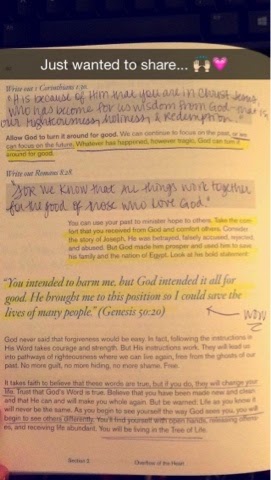 Just wanted to share... 🙌🏻💗
Write out 1 Corinthians 1:30.
"It is because of Him that you are in Christ Jesus,
who has become for us wisdom from God - that is,
our righteousness, holiness & redemption.
Allow God to turn it around for good. We can continue to focus on the past, or we
can focus on the future. Whatever has happened, however tragic, God can turn it
around for good.
"For we know that all things work together
for the good of those who love God."
Write out Romans 8:28.
You can use your past to minister hope to others. Take the com-
fort that you received from God and comfort others. Consider
the story of Joseph. He was betrayed, falsely accused, rejected,
and abused. But God made him prosper and used him to save
his family and the nation of Egypt. Look at his bold statement:
"You intended to harm me, but God intended it all for
good. He brought me to this position so I could save the
lives of many people." (Genesis 50:20)
WOW
God never said that forgiveness would be easy. In fact, following the instructions in
His Word takes courage and strength. But His instructions work. They will lead us
into pathways of righteousness where we can live again, free from the ghosts of our
past. No more guilt, no more hiding, no more shame. Free.
It takes faith to believe that these words are true, but if you do, they will change your
life. Trust that God's Word is true. Believe that you have been made new and clean
and that He can and will make you whole again. But be warned: Life as you know it
will never be the same. As you begin to see yourself the way God sees you, you will
begin to see others differently. You'll find yourself with open hands, releasing offens-
es, and receiving life abundant. You will be living in the Tree of Life.
Section 3
Overflow of the Heart